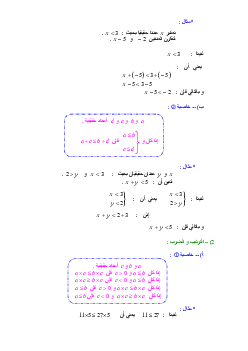 * مثال :
نعتبر x عددا حقيقيا بحيث : x < 3 .
لنقارن العددين 2 − و x − 5 .
لدينا : x < 3
يعني أن :
x + (−5) < 3 + (−5)
x − 5 < 3 − 5
و بالتالي فإن : x − 5 < −2
ب) – خاصية ② :
a و b و c و d أعداد حقيقية .
إذا كان a ≤ b و c ≤ d فإن a + c ≤ b + d
* مثال :
x و y عددان حقيقيان بحيث : x < 3 و 2 > y .
لنبين أن : x + y < 5 .
لدينا : x < 3 2 > y يعني أن : x < 3 y < 2
إذن : x + y < 2 + 3
و بالتالي فإن : x + y < 5
2) – الترتيب و الضرب :
أ) – خاصية ① :
a و b و c أعداد حقيقية .
إذا كان a ≤ b و c > 0 فإن a × c ≤ b × c
إذا كان a × c ≤ b × c و c > 0 فإن a ≤ b
إذا كان a ≤ b و c < 0 فإن a × c ≥ b × c
إذا كان a × c ≥ b × c و c < 0 فإن a ≤ b
* مثال :
لدينا : 11 ≤ 27 يعني أن 11×5 ≤ 27×5